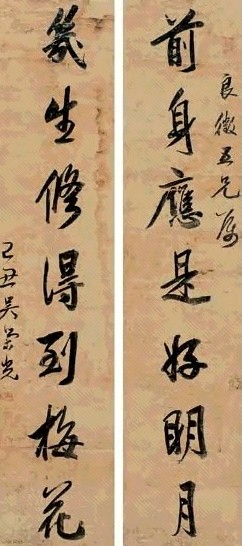 良徵五兄屬
前身應是好明月
幾生修得到梅花
己丑吳榮光